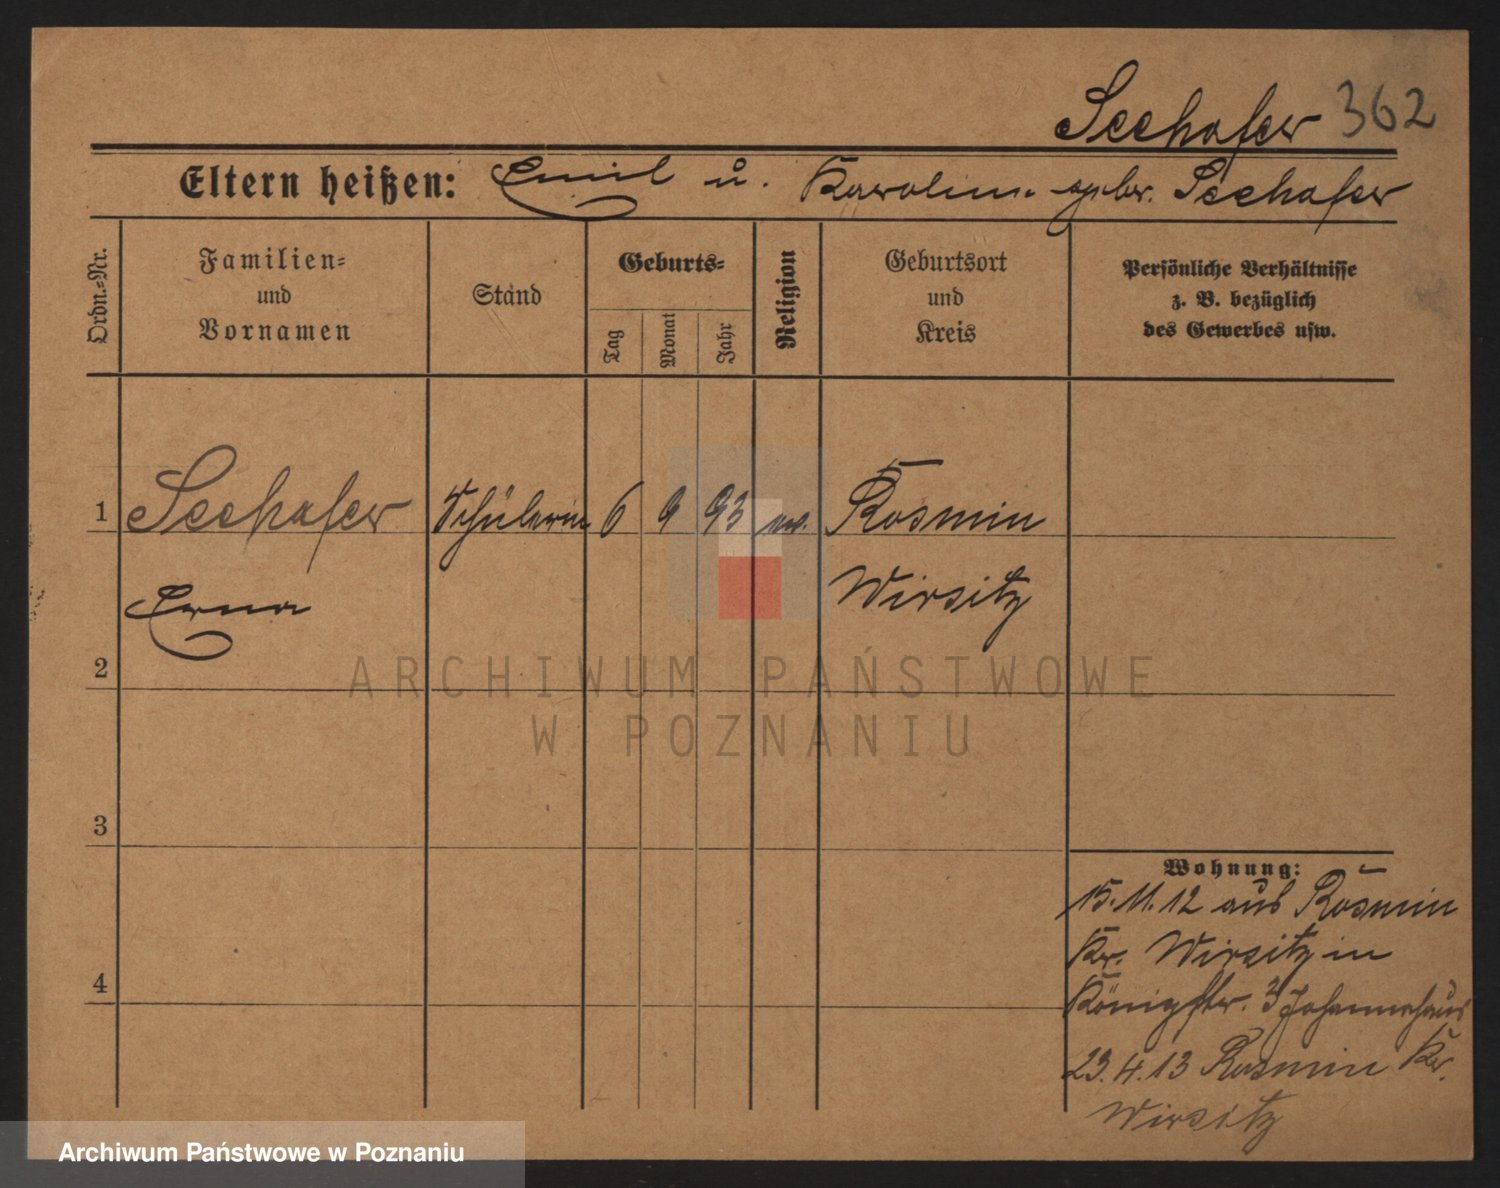 Seehafer 362
Eltern heißen: Emil u. Karoline gebr. Seehafer
Ordn.-Nr.
Familien-
und
Vornamen
Stand
Geburts-
Tag
Monat
Jahr
Religion
Geburtsort
und
Kreis
Persönliche Verhältnisse
z. B. bezüglich
des Gewerbes usw.
1 Seehafer Schülerin 6 9 93 ev. Rosmin
Wirsitz
Erna
2
ARCHIWUM PAŃSTWOWE
W POZNANIU
3
Wohnung:
15.11.12 aus Rosmin
Kr. Wirsitz in
4
Königstr. 3 Johannehaus
23.4.13 Rosmin Kr.
Wirsitz
Archiwum Państwowe w Poznaniu